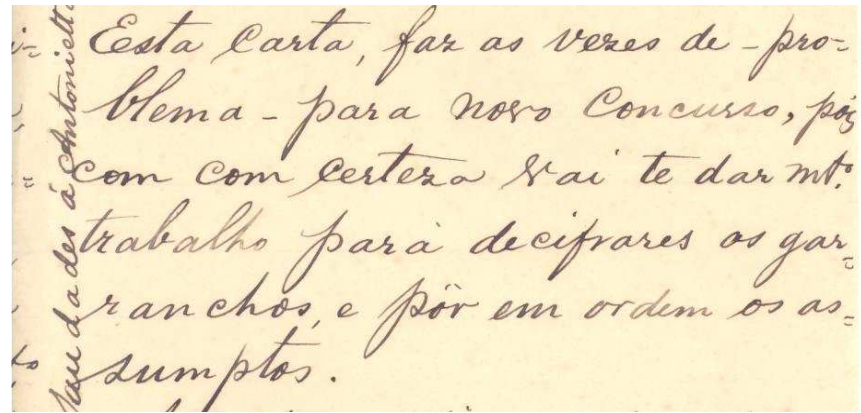 Esta carta, faz as vezes de - pro=
blema - para novo Concurso, pois
com com certeza vai te dar mtº.
trabalho para decifrares os gar=
ranchos, e pôr em ordem os as=
sumptos.
Saudades á Antonietta